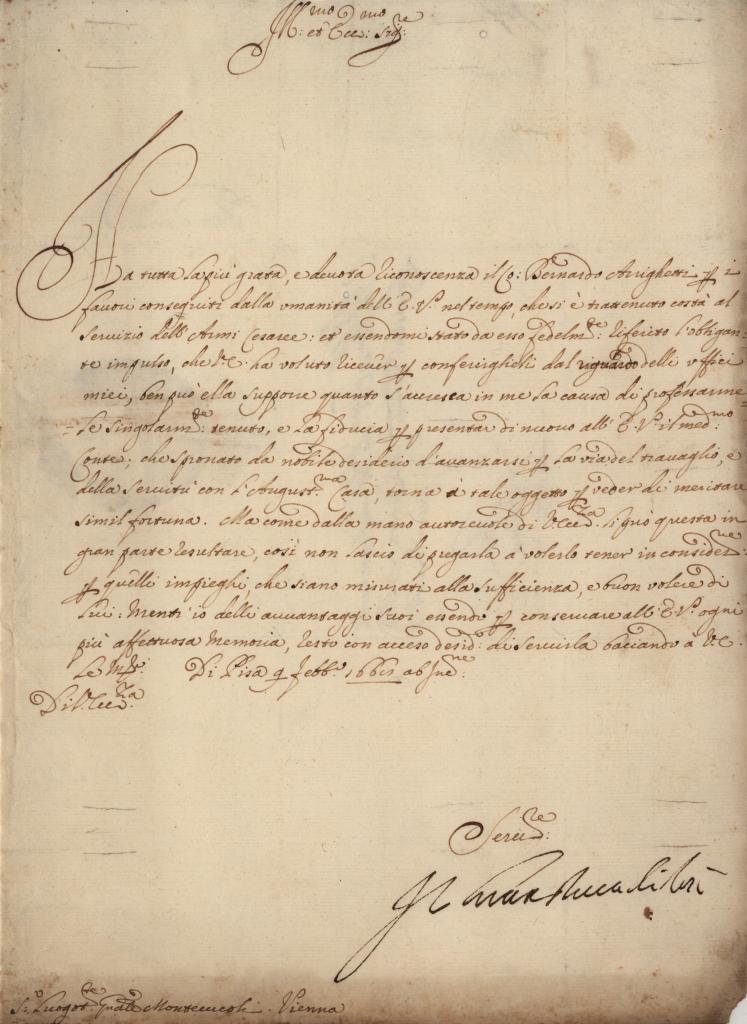 Ill.mo et Ecc.mo Sig.re
Ha tutta la più grata, e devota riconoscenza il Co: Bernardo Arrighetti p i
favori conseguiti dalla umanità dell' E. V. nel tempo, che si è trattenuto costà al
servizio dell' Armi Cesaree: et essendomi stato da esso fedelm.te riferito l'obligan=
te impulso, che V. E. ha voluto ricever p conferirglieli dal riguardo delli uffici
miei, ben può ella supporre quanto s'accresca in me la causa di professarme=
=le singolarm.te tenuto, e la fiducia p presentar di nuovo all' E. V. il med.mo
Conte; che spronato da nobile desiderio d'avanzarsi p la via del travaglio, e
della servitù con l'August.ma Casa, torna à tale oggetto p veder di meritare
simil fortuna. Ma come dalla mano autorevole di V. Ecc.za li può questa in
gran parte resultare, così non lascio di pregarla a volerlo tener in consider.ne
p quelli impieghi, che siano misurati alla sufficienza, e buon volere di
lui: Mentr' io delli avvantaggi suoi essendo p conservare all' E. V. ogni
più affettuosa memoria, resto con acceso desid.o di servirla baciando a V. E.
le M.ni Di Pisa 9 Febb.o ab Inc.ne
Di V. Ecc.za
Serv.re
Il Gran Duca di Tos.
S.r Luogot.te Gnāle Montecucoli. Vienna